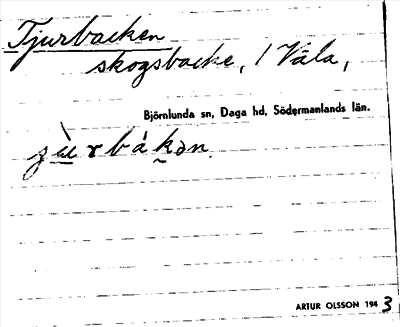 Tjurbacken
skogsbacke, 1 Våla,
Björnlunda sn, Daga hd, Södermanlands län.
ARTUR OLSSON 1943